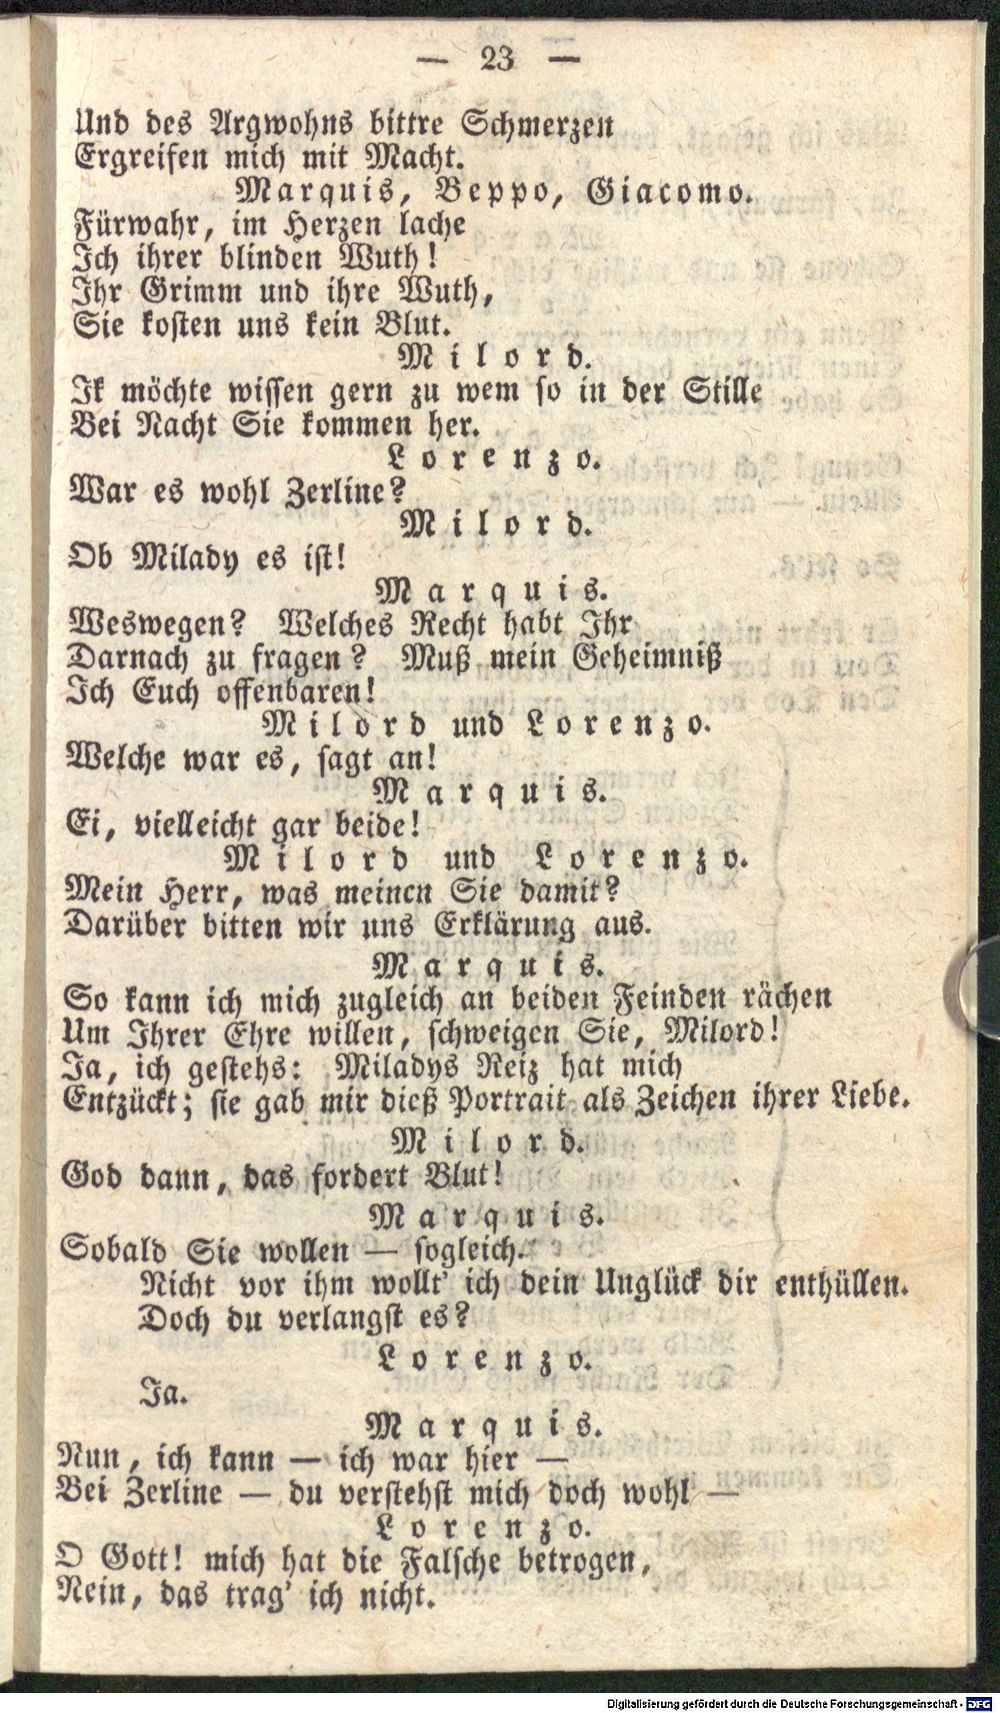 — 23 —
Und des Argwohns bittre Schmerzen
Ergreifen mich mit Macht.
Marquis, Beppo, Giacomo.
Fürwahr, im Herzen lache
Ich ihrer blinden Wuth!
Ihr Grimm und ihre Wuth,
Sie kosten uns kein Blut.
Milord.
Ik möchte wissen gern zu wem so in der Stille
Bei Nacht Sie kommen her.
Lorenzo.
War es wohl Zerline?
Milord.
Ob Milady es ist!
Marquis.
Weswegen? Welches Recht habt Ihr
Darnach zu fragen? Muß mein Geheimniß
Ich Euch offenbaren!
Milord und Lorenzo.
Welche war es, sagt an!
Marquis.
Ei, vielleicht gar beide!
Milord und Lorenzo.
Mein Herr, was meinen Sie damit?
Darüber bitten wir uns Erklärung aus.
Marquis.
So kann ich mich zugleich an beiden Feinden rächen
Um Ihrer Ehre willen, schweigen Sie, Milord!
Ja, ich gestehs: Miladys Reiz hat mich
Entzückt; sie gab mir dieß Portrait als Zeichen ihrer Liebe.
Milord.
God dann, das fordert Blut!
Marquis.
Sobald Sie wollen — sogleich.
Nicht vor ihm wollt' ich dein Unglück dir enthüllen.
Doch du verlangst es?
Lorenzo.
Ja.
Marquis.
Nun, ich kann — ich war hier —
Bei Zerline — du verstehst mich doch wohl —
Lorenzo.
O Gott! mich hat die Falsche betrogen,
Nein, das trag' ich nicht.
Digitalisierung gefördert durch die Deutsche Forschungsgemeinschaft - DFG